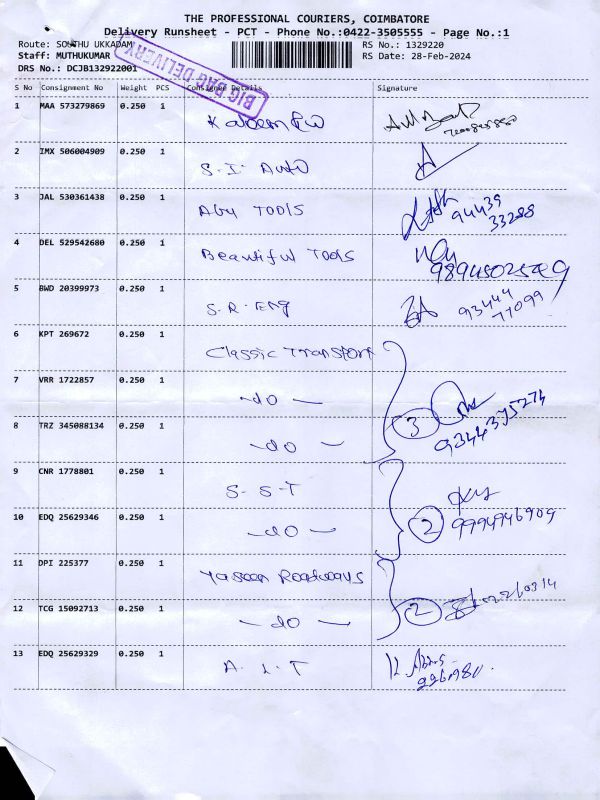 THE PROFESSIONAL COURIERS, COIMBATORE
Delivery Runsheet - PCT - Phone No.:0422-3505555 - Page No.:1
Route: SOUTHU UKKADAM RS No.: 1329220
Staff: MUTHUKUMAR RS Date: 28-Feb-2024
DRS No.: DCJB132922001
BIG BAG DELIVERY
S No Consignment No Weight PCS Consignee Details Signature
1 MAA 573279869 0.250 1
2 IMX 506004909 0.250 1 S.I. Auto
3 JAL 530361438 0.250 1 Abu TOOLS 94439
33288
4 DEL 529542680 0.250 1 Beautiful Tools
5 BWD 20399973 0.250 1 S.R. Eng 93444
77099
6 KPT 269672 0.250 1 Classic Transport
7 VRR 1722857 0.250 1 -do-
8 TRZ 345088134 0.250 1 -do- 3 9344395274
9 CNR 1778801 0.250 1 S.S.T
10 EDQ 25629346 0.250 1 -do- 2 9994946909
11 DPI 225377 0.250 1 Yaseen Roadways
12 TCG 15092713 0.250 1 -do- 2
13 EDQ 25629329 0.250 1 A.L.T